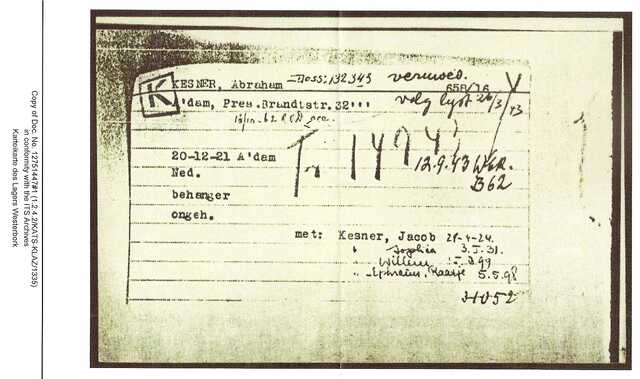 Copy of Doc. No. 12751447#1 (1.2.4.2/KATS-KLAZ/1335)
in conformity with the ITS Archives
Karteikarte des Lagers Westerbork
K
KESNER, Abraham Doss: 132.343 vermoed.
658/16 V
A'dam, Pres.Brandtstr.32''' volg lyst 26/3/43
20-12-21 A'dam
12.9.43 W.
B62
Ned.
behanger
ongeh.
met: Kesner, Jacob 21-4-24.
" Sophia 3.I.31.
" Willem I.3.99
" Ephraim, Kaatje 5.5.98
21052